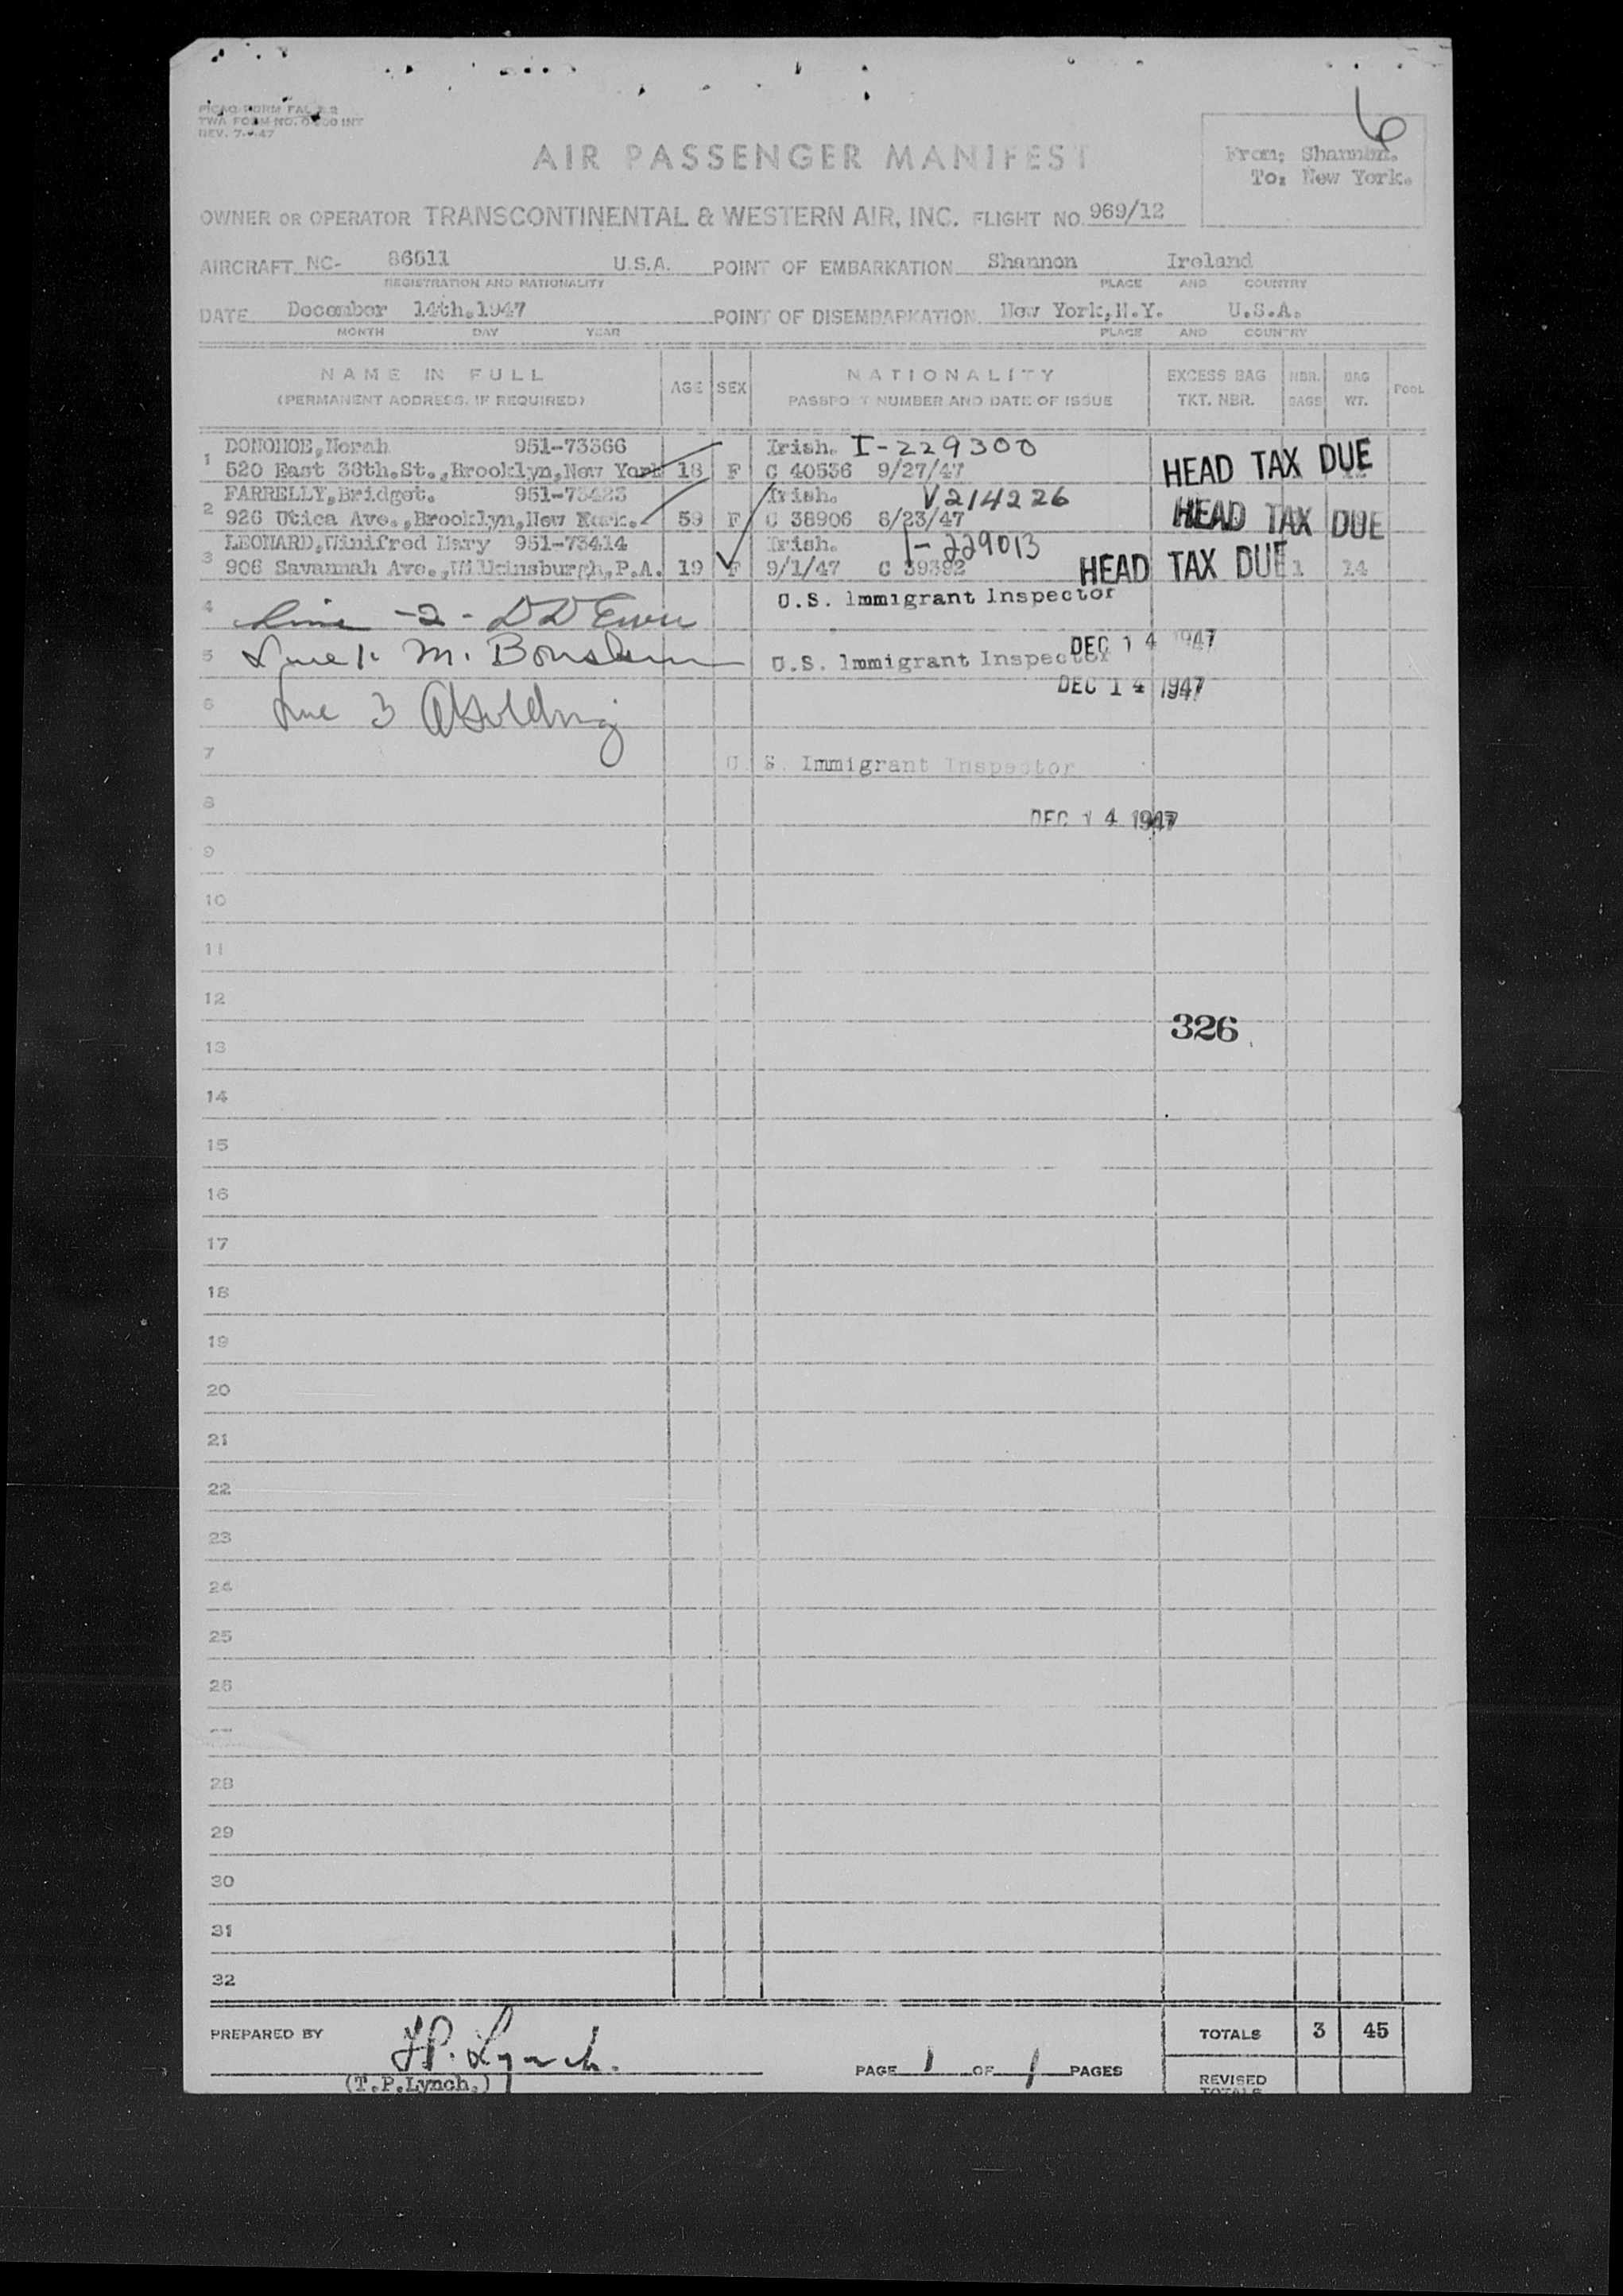 PICAO FORM FAL 2.2
TWA FORM NO. INT
REV. 7. .47
6
AIR PASSENGER MANIFEST
From; Shannon.
To: New York.
OWNER OR OPERATOR TRANSCONTINENTAL & WESTERN AIR, INC. FLIGHT NO. 969/12
AIRCRAFT NC- 86511 U.S.A. POINT OF EMBARKATION Shannon Ireland
REGISTRATION AND NATIONALITY PLACE AND COUNTRY
DATE December 14th.1947 POINT OF DISEMBARKATION New York,N.Y. U.S.A.
MONTH DAY YEAR PLACE AND COUNTRY
NAME IN FULL AGE SEX NATIONALITY EXCESS BAG NBR. BAG POOL
(PERMANENT ADDRESS, IF REQUIRED) PASSPORT NUMBER AND DATE OF ISSUE TKT. NBR. BAGS WT.
DONOHOE,Norah 951-73366 Irish. I-229300
1 520 East 38th.St.,Brooklyn,New York 18 F C 40536 9/27/47 HEAD TAX DUE
FARRELLY,Bridget. 951-73423 Irish. V214226
2 926 Utica Ave.,Brooklyn,New York. 59 F C 38906 8/23/47 HEAD TAX DUE
LEONARD,Winifred Mary 951-73414 Irish. I-229013
3 906 Savannah Ave.,Wilkinsburgh,P.A. 19 F 9/1/47 C 39392 HEAD TAX DUE 1 14
4 Line -2- U.S. Immigrant Inspector
DEC 14 1947
5 Line 1. M. U.S. Immigrant Inspector
DEC 14 1947
6 Line 3
7 U.S. Immigrant Inspector
8 DEC 14 1947
9
10
11
12
326
13
14
15
16
17
18
19
20
21
22
23
24
25
26
28
29
30
31
32
PREPARED BY T.P. Lynch. TOTALS 3 45
PAGE 1 OF 1 PAGES
(T.P.Lynch.) REVISED
TOTALS